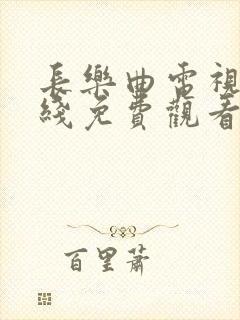 長樂曲電視
綫免費觀看
百里蕭